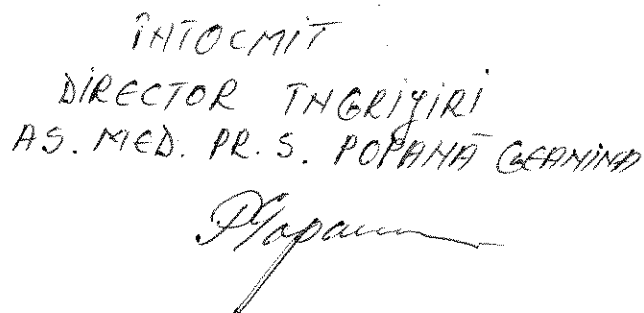 ÎNTOCMIT
DIRECTOR ÎNGRIJIRI
AS. MED. PR. S. POPANĂ GEANINA